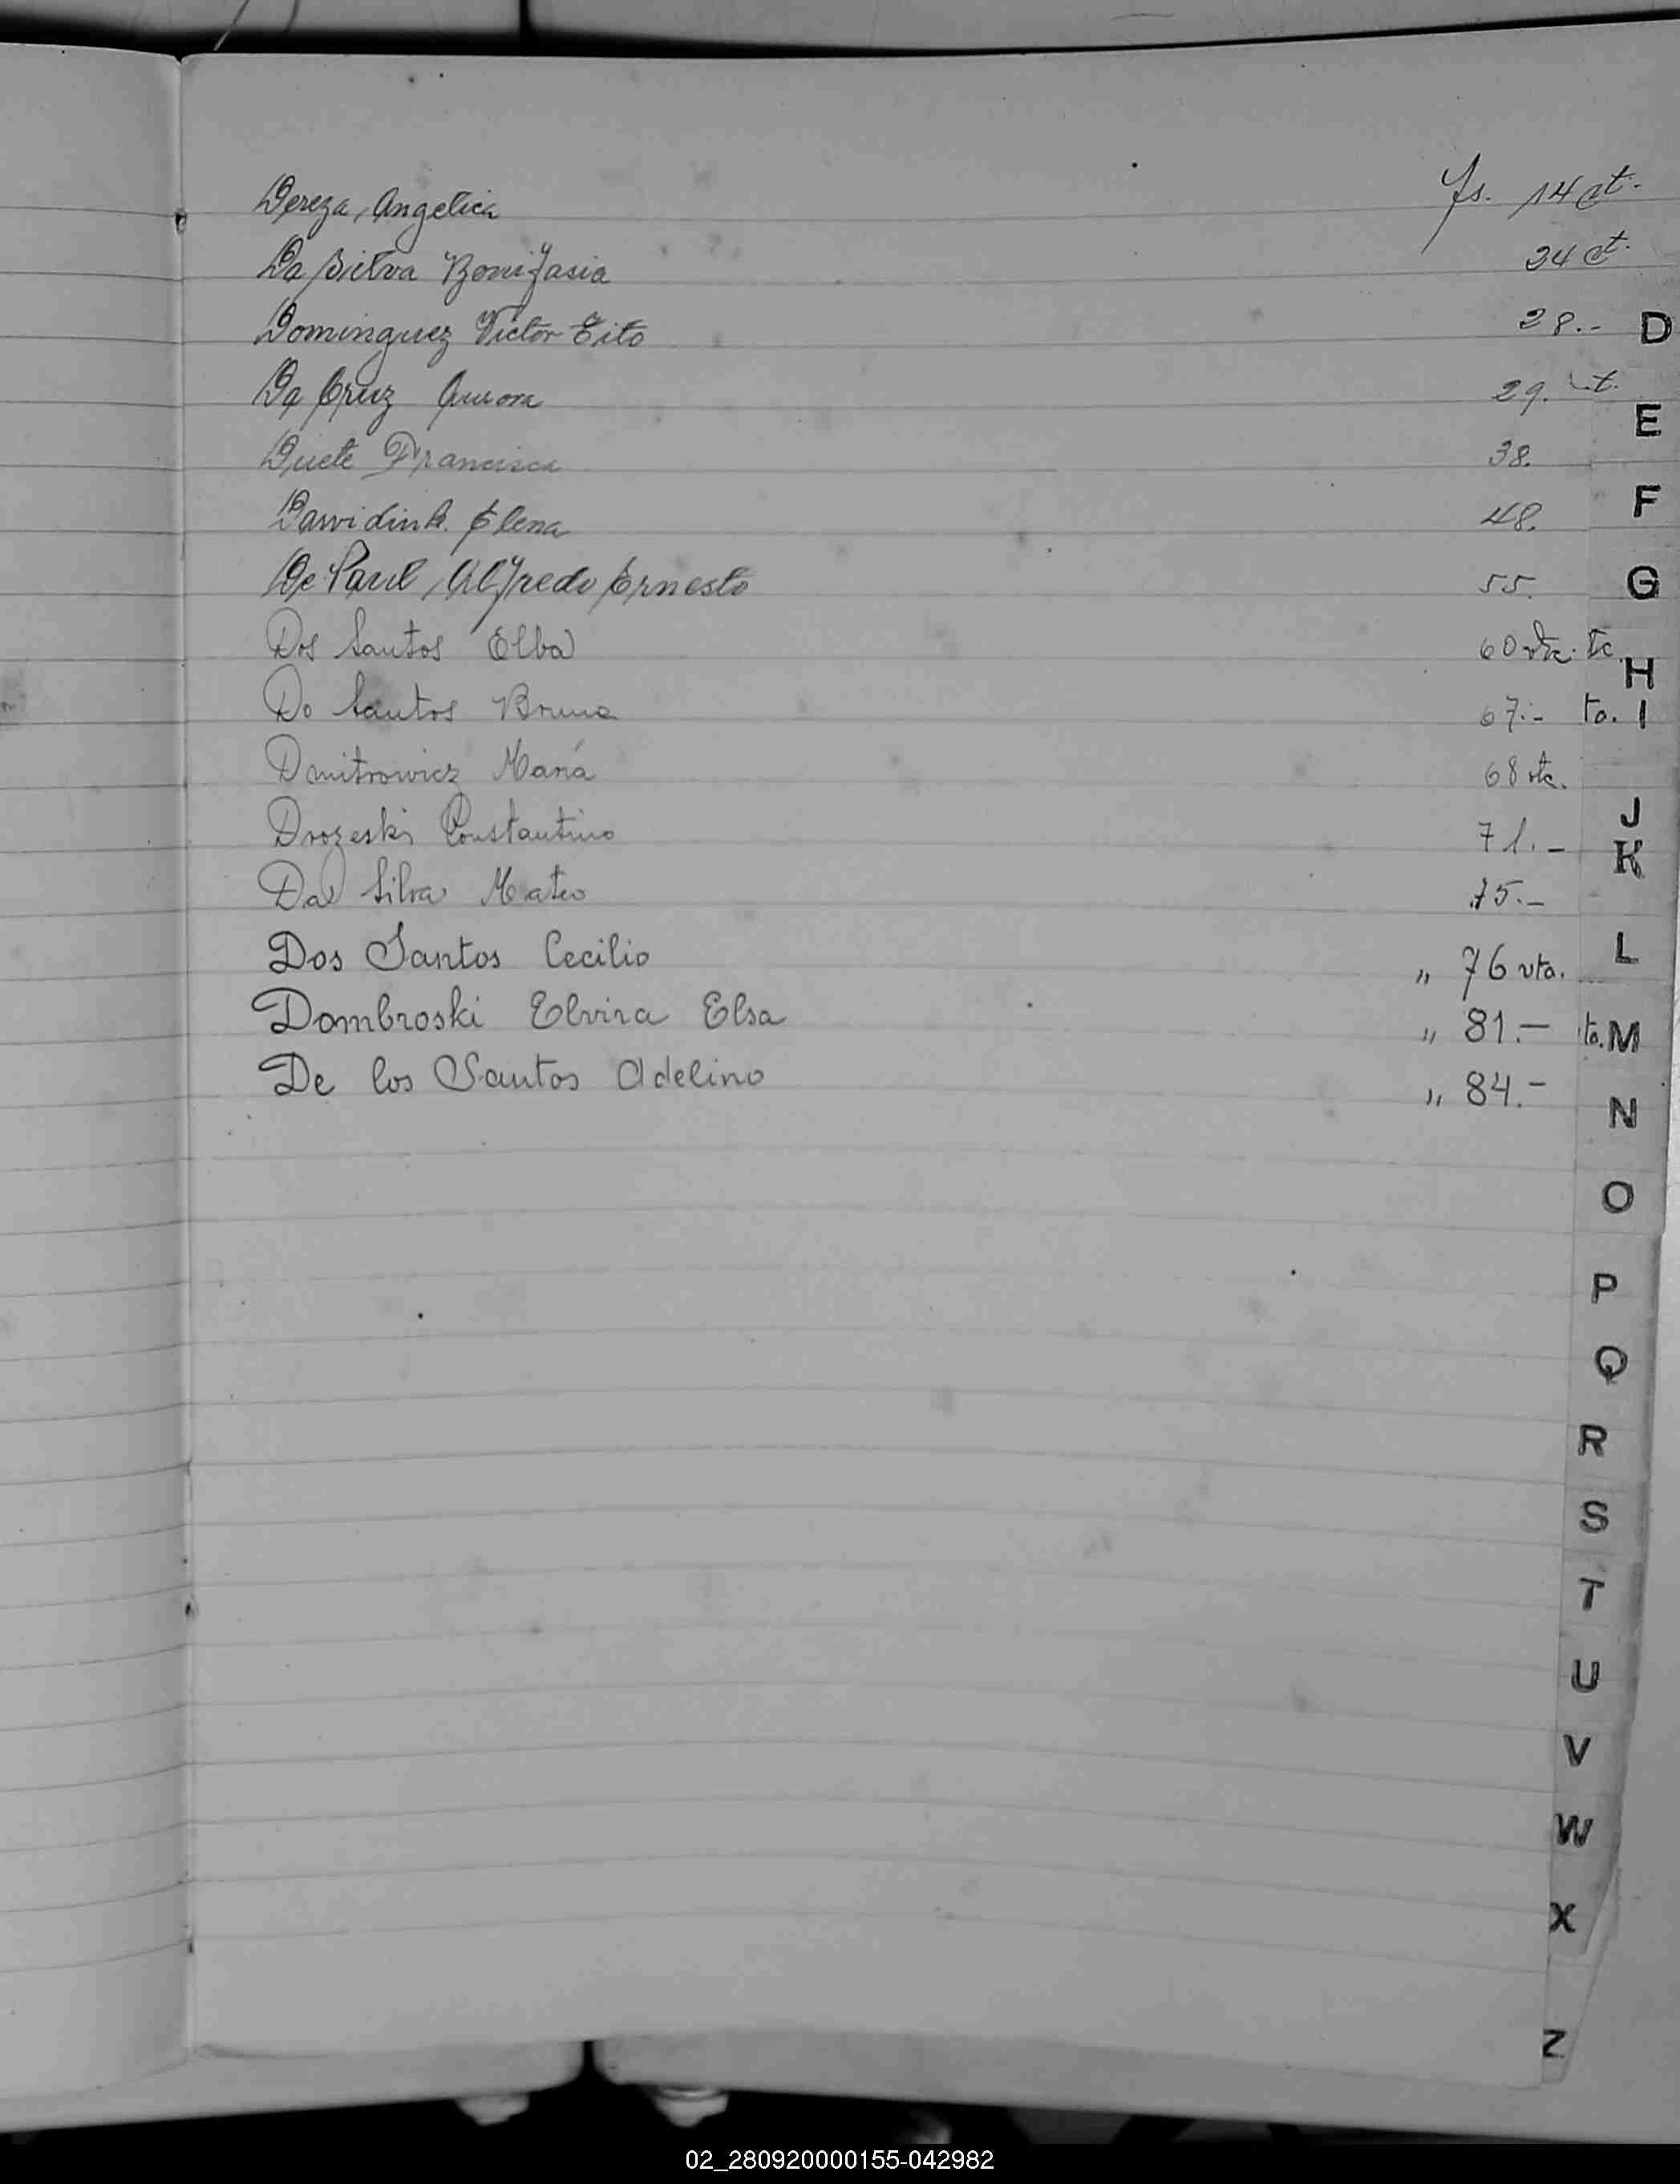 Dereza, Angelica fs. 14 vt.
Da Silva Bonifasia 24 vt.
Dominguez Victor Tito 28.-
Da Cruz Aurora 29. t.
Duete Francisca 38.
Dawidink. Elena 48.
De Paul, Alfredo Ernesto 55.
Dos Santos Elba 60 vta. ta.
Do Santos Bruna 67.- ta.
Dmitrowicz María 68 vta.
Drozeski Constantino 71.-
Da Silva Mateo 75.-
Dos Santos Cecilio " 76 vta.
Dombroski Elvira Elsa " 81.- ta.
De los Santos Adelino " 84.-
D
E
F
G
H
I
J
K
L
M
N
O
P
Q
R
S
T
U
V
W
X
Z
02_280920000155-042982